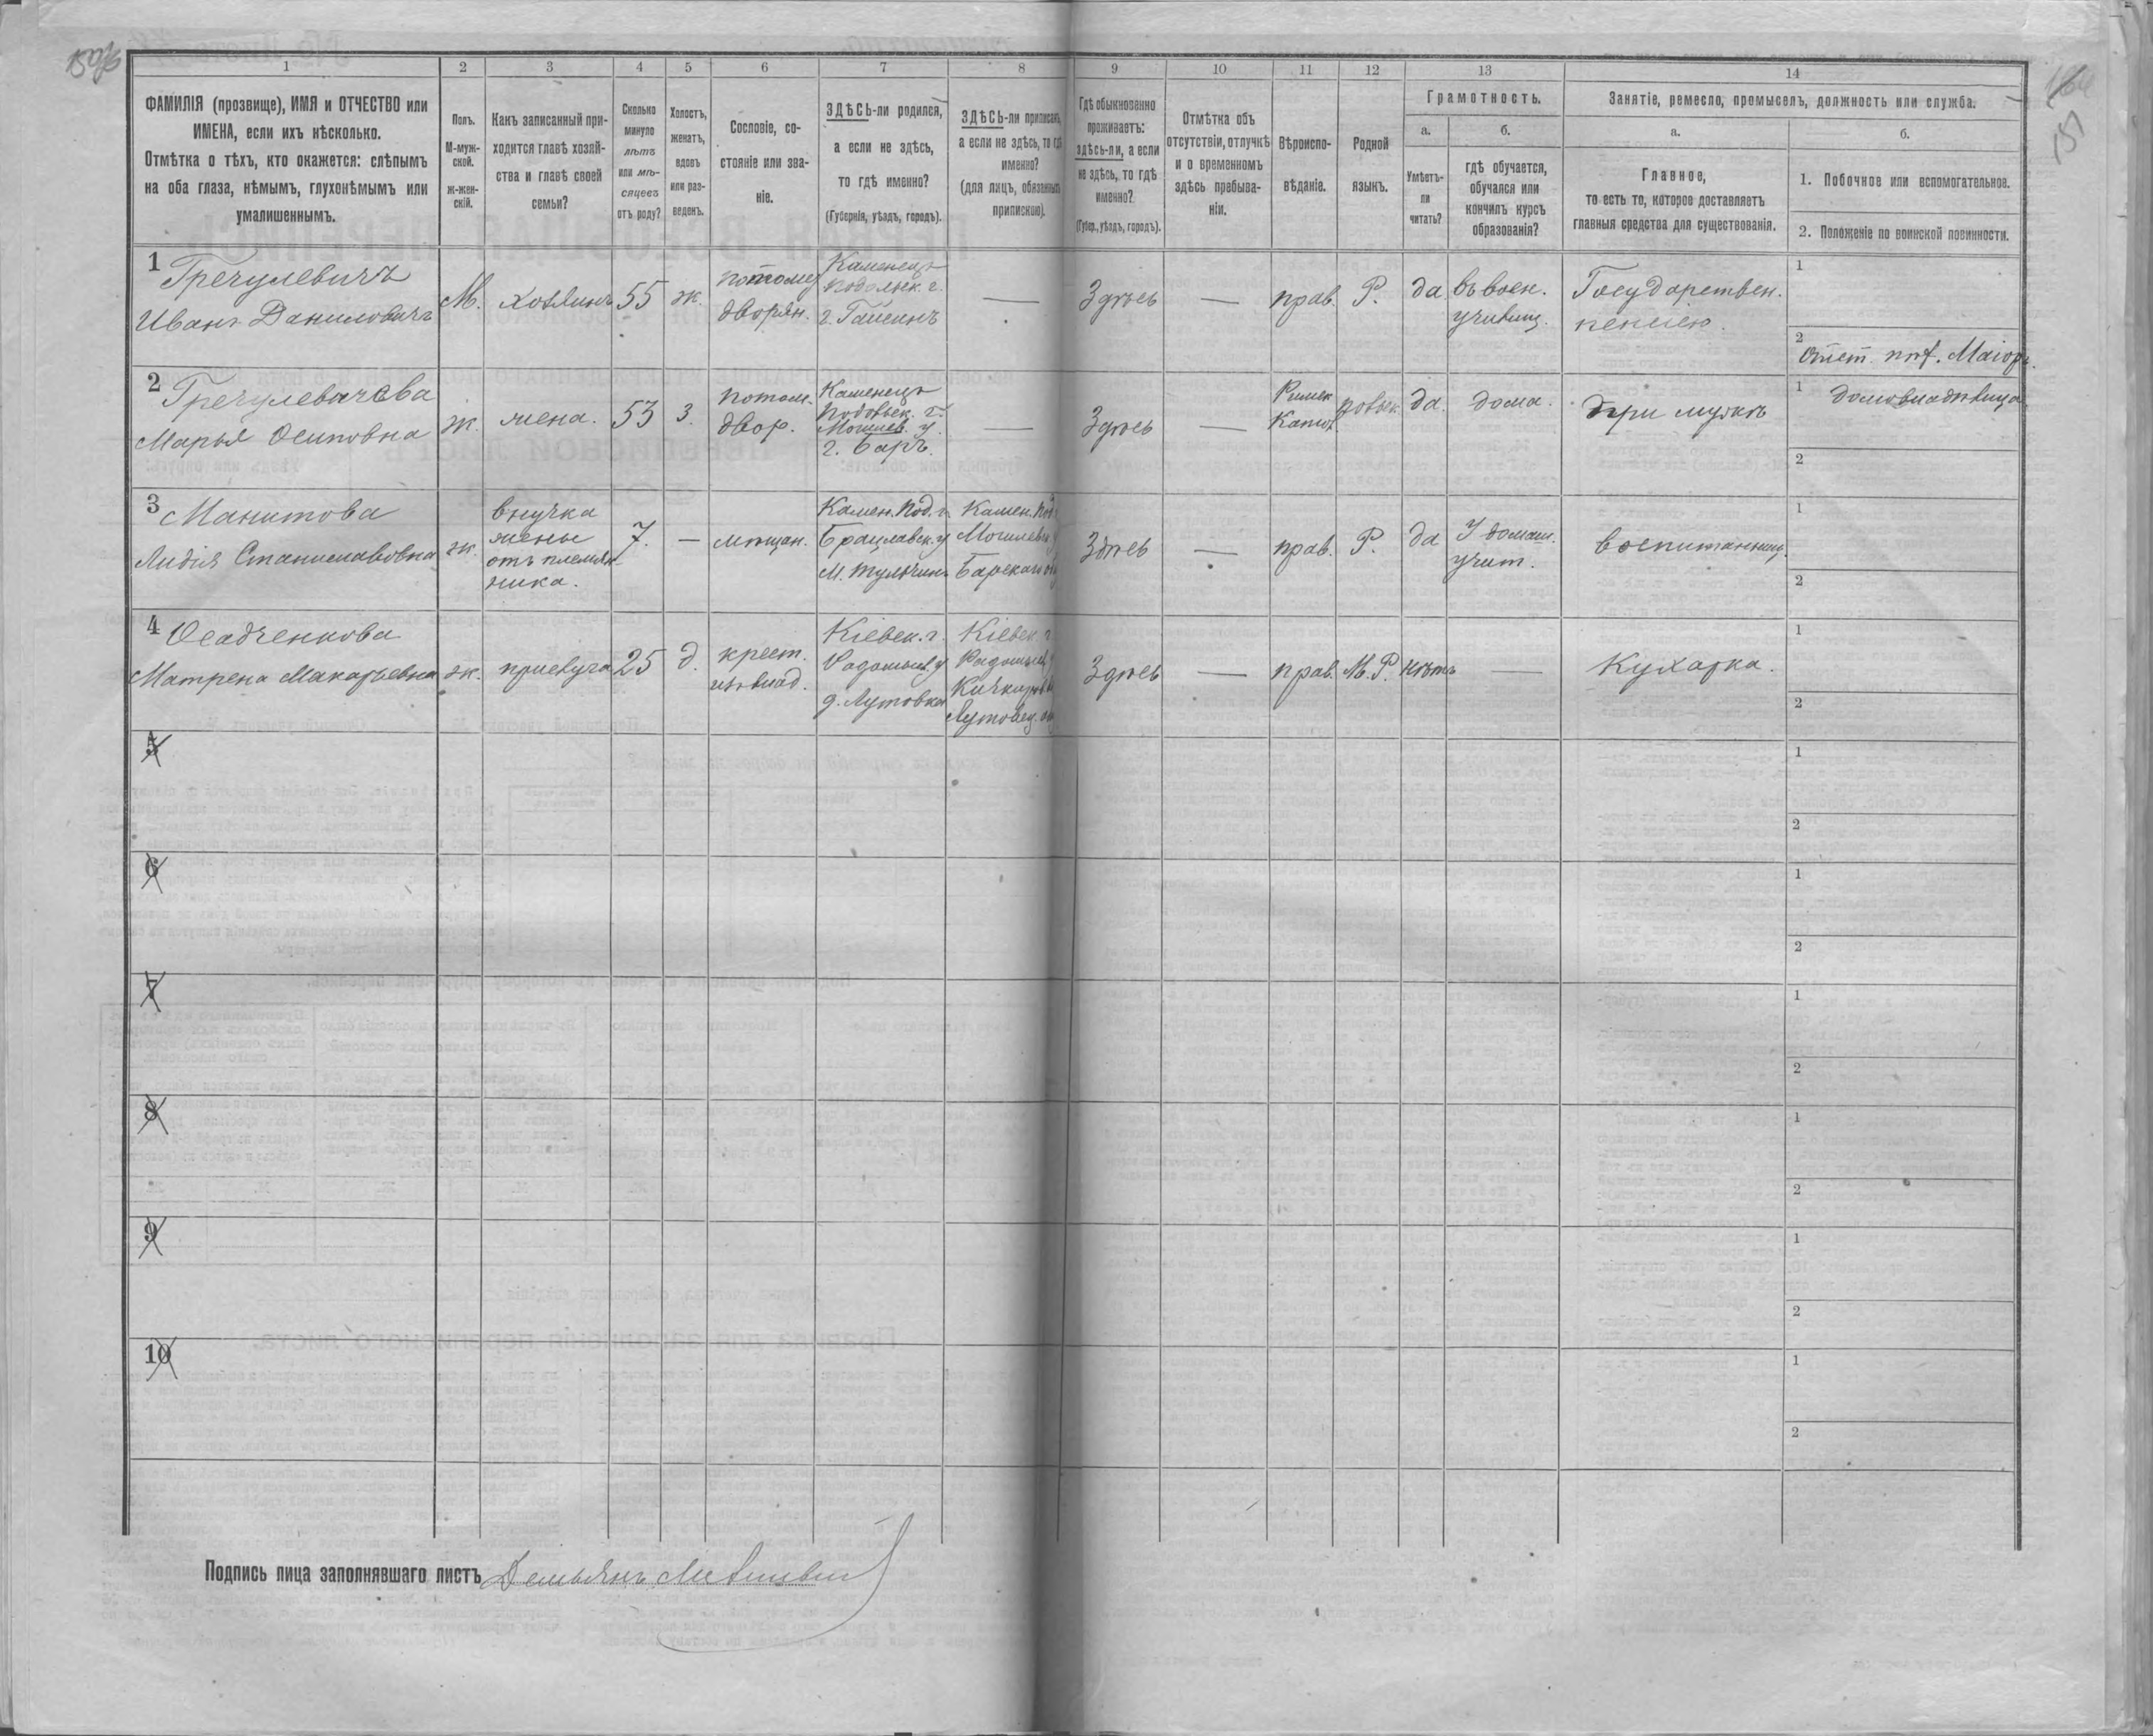 150об
151
1 2 3 4 5 6 7 8 9 10 11 12 13 14
ФАМИЛІЯ (прозвище), ИМЯ и ОТЧЕСТВО или
ИМЕНА, если ихъ нѣсколько.
Отмѣтка о тѣхъ, кто окажется: слѣпымъ
на оба глаза, нѣмымъ, глухонѣмымъ или
умалишеннымъ.
Полъ.
М-муж-
ской.
Ж-жен-
скій.
Какъ записанный при-
ходится главѣ хозяй-
ства и главѣ своей
семьи?
Сколько
минуло
лѣтъ
или мѣ-
сяцевъ
отъ роду?
Холостъ,
женатъ,
вдовъ
или раз-
веденъ.
Сословіе, со-
стояніе или зва-
ніе.
ЗДѢСЬ-ли родился,
а если не здѣсь,
то гдѣ именно?
(Губернія, уѣздъ, городъ).
ЗДѢСЬ-ли приписанъ,
а если не здѣсь, то гдѣ
именно?
(для лицъ, обязанныхъ
припискою).
Гдѣ обыкновенно
проживаетъ:
здѣсь-ли, а если
не здѣсь, то гдѣ
именно?
(Губер., уѣздъ, городъ).
Отмѣтка объ
отсутствіи, отлучкѣ
и о временномъ
здѣсь пребыва-
ніи.
Вѣроиспо-
вѣданіе.
Родной
языкъ.
Грамотность.
а.
Умѣетъ-
ли
читать?
б.
гдѣ обучается,
обучался или
кончилъ курсъ
образованія?
Занятіе, ремесло, промыселъ, должность или служба.
а.
Главное,
то есть то, которое доставляетъ
главныя средства для существованія.
б.
1. Побочное или вспомогательное.
2. Положеніе по воинской повинности.
1 Гречулевичъ
Иванъ Даниловичъ
М. хозяинъ 55 ж.
потомс
дворян.
Каменецъ
Подольск. г.
г. Гайсинъ
—
Здѣсь — прав. Р. да
въ воен.
училищ.
Государствен.
пенсіею.
1
2
Отст. Маіоръ.
2 Гречулевичева
Марья Осиповна
ж. жена. 53 з.
потом.
двор.
Каменецъ
Подольск. г.
Могилев. у.
г. Баръ.
—
Здѣсь —
Римск
Катол.
польск. да. дома.
При мужѣ
1 домовладѣлица
2
3 Манитова
Лидія Станиславовна
ж.
внучка
жены
отъ племян
ника.
7. — мѣщан.
Камен. Под. г.
Брацлавск. у
м. Тульчинъ
Камен. Под
Могилевск. у
Барскаго об
Здѣсь — прав. Р. да
У домаш.
учит.
воспитанниц.
1
2
4 Осадченкова
Матрена Макарьевна
ж. прислуга 25 д.
крест.
изъ влад.
Кіевск. г.
Радомысл. у
д. Лутовка
Кіевск. г
Радомысл. у
Лутовец. об
Здѣсь — прав. М. Р. нѣтъ —
Кухарка.
1
2
5
1
2
6
1
2
7
1
2
8
1
2
9
1
2
10
1
2
Подпись лица заполнявшаго листъ Демьянъ